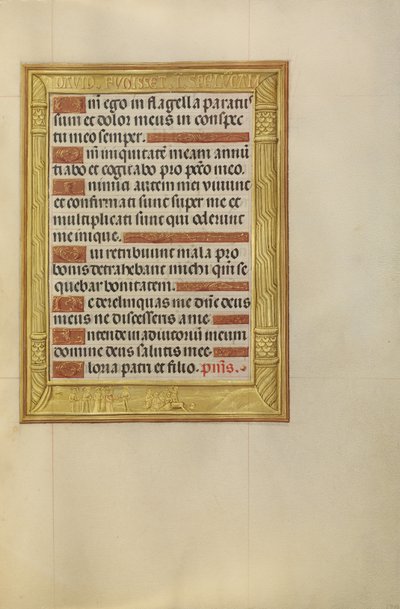 DAVID FVDISSET I SPELVCAM
Qm̄ ego in flagella paratꝰ
sum et dolor meus in conspec
tu meo semper.
Qm̄ iniquitatē meam annūt
tiabo et cogitabo pro pctō meo.
Inimici autem mei viuunt
et confirmati sunt super me et
multiplicati sunt qui oderunt
me inique.
Qui retribuunt mala pro
bonis detrahebant michi qm̄ se
quebar bonitatem.
Ne derelinquas me dn̄e deus
meus ne discesseris a me.
Intende in adiutoriū meum
domine deus salutis mee.
Gloria patri et filio. pm̄s.